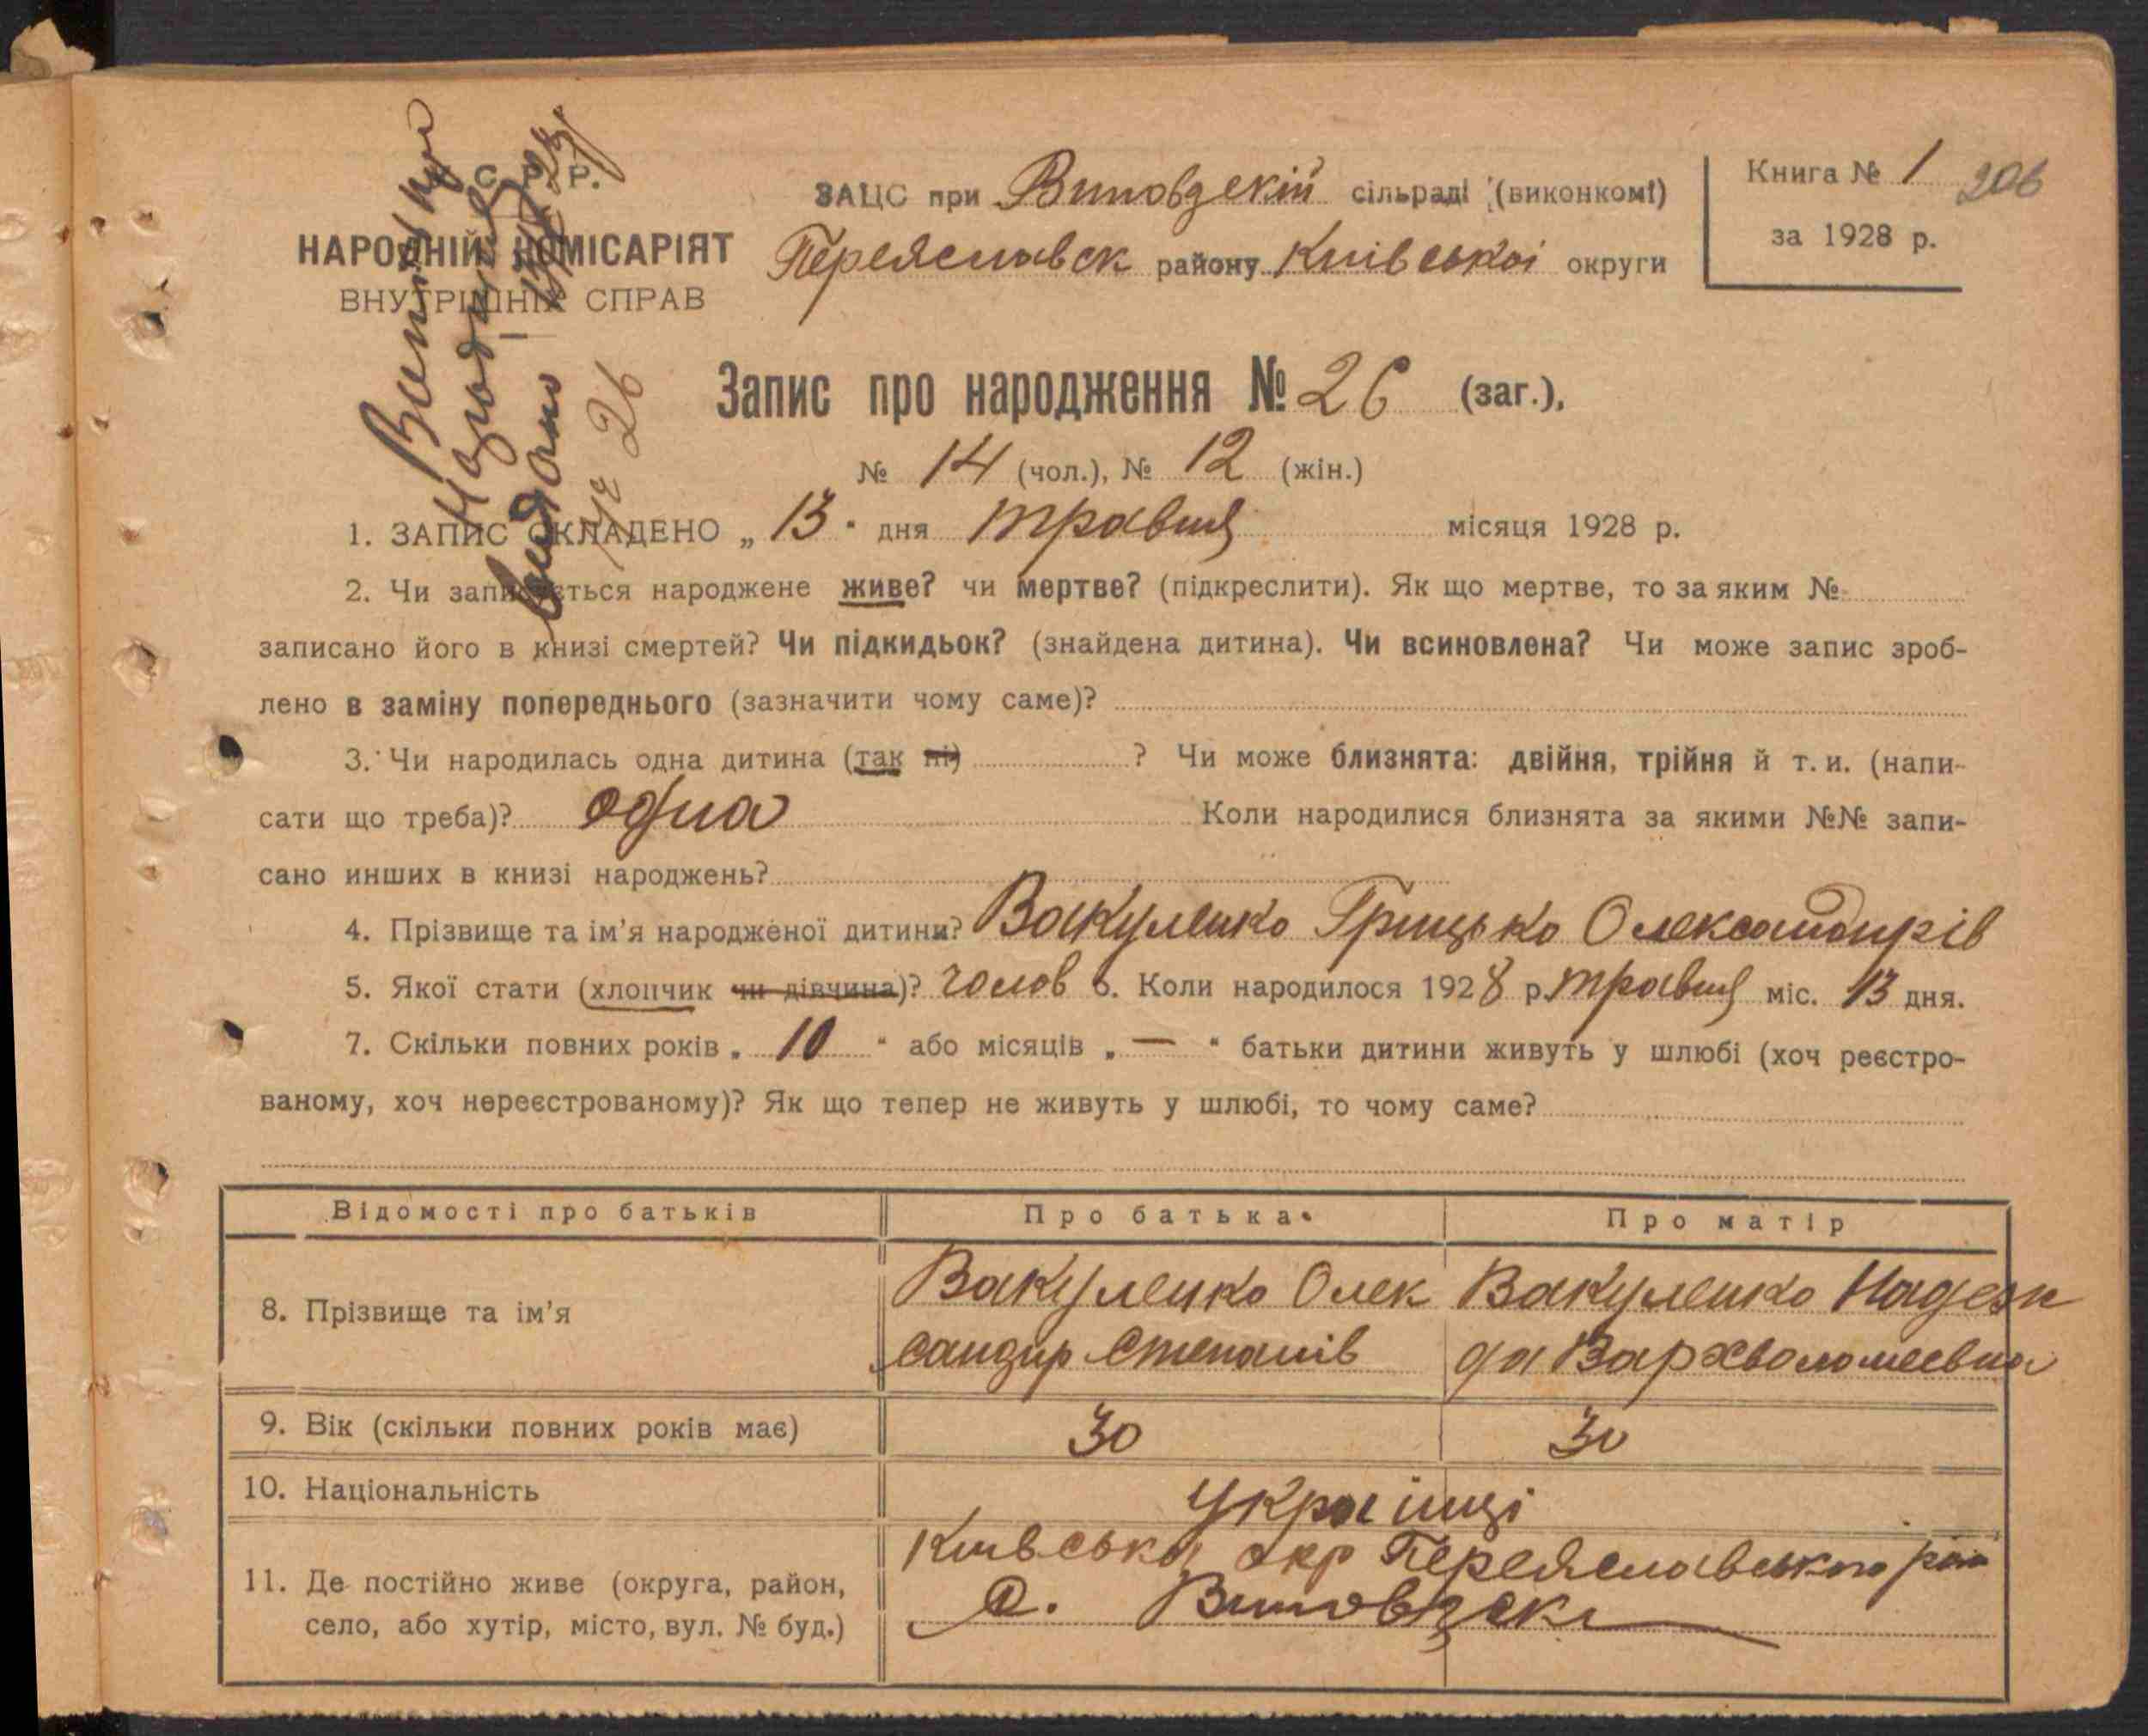 С. Р. Р.
НАРОДНІЙ КОМІСАРІЯТ
ВНУТРІШНІХ СПРАВ
ЗАЦС при Виповзскій сільраді (виконкомі)
Переяславск району Київської округи
Книга № 1 206
за 1928 р.
Витяг про
народження
видано
№ 26
Запис про народження № 26 (заг.),
№ 14 (чол.), № 12 (жін.)
1. ЗАПИС СКЛАДЕНО „ 13 " дня травня місяця 1928 р.
2. Чи записується народжене живе? чи мертве? (підкреслити). Як що мертве, то за яким №
записано його в книзі смертей? Чи підкидьок? (знайдена дитина). Чи всиновлена? Чи може запис зроб-
лено в заміну попереднього (зазначити чому саме)?
3. Чи народилась одна дитина (так ні) ? Чи може близнята: двійня, трійня й т. и. (напи-
сати що треба)? одна Коли народилися близнята за якими №№ запи-
сано инших в книзі народжень?
4. Прізвище та ім'я народженої дитини? Вакуленко Грицько Олександрів
5. Якої стати (хлопчик чи дівчина)? чолов 6. Коли народилося 1928 р. травня міс. 13 дня.
7. Скільки повних років „ 10 " або місяців „ — " батьки дитини живуть у шлюбі (хоч реєстро-
ваному, хоч нереєстрованому)? Як що тепер не живуть у шлюбі, то чому саме?
Відомості про батьків Про батька Про матір
8. Прізвище та ім'я
Вакуленко Олек
сандир Степанів
Вакуленко Надеж
да Вархволомеевна
9. Вік (скільки повних років має) 30 30
10. Національність українці
11. Де постійно живе (округа, район,
село, або хутір, місто, вул. № буд.)
Київської окр Переяславського рай
с. Виповзски